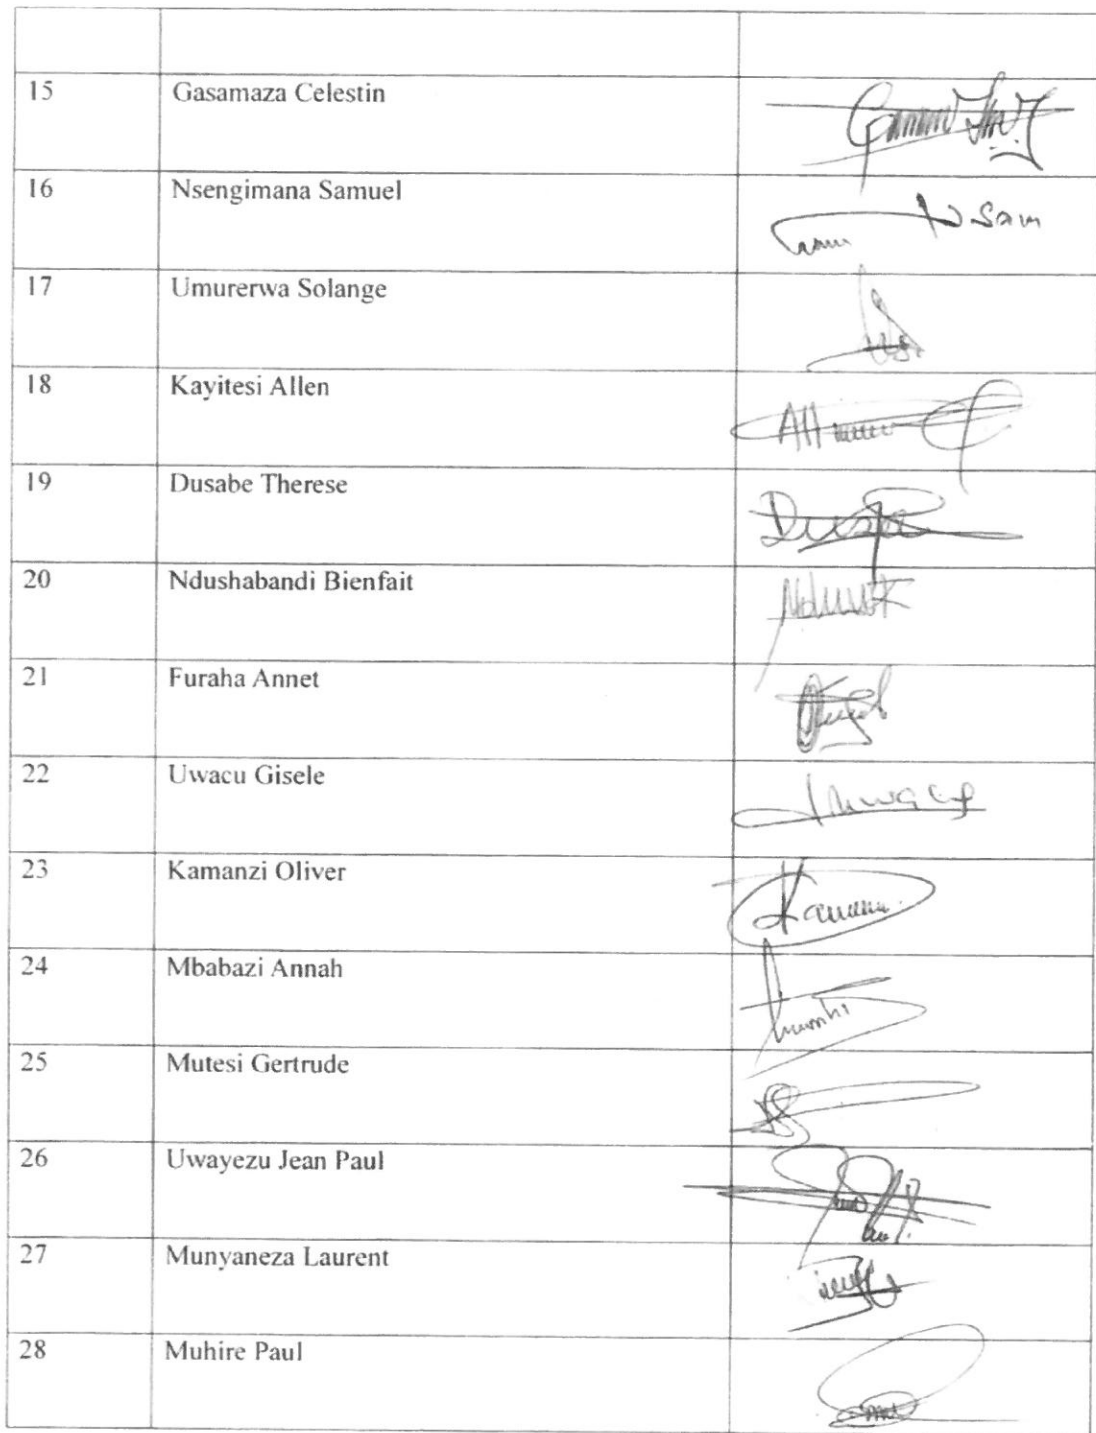 15 Gasamaza Celestin
16 Nsengimana Samuel N Sam
17 Umurerwa Solange
18 Kayitesi Allen
19 Dusabe Therese
20 Ndushabandi Bienfait
21 Furaha Annet
22 Uwacu Gisele
23 Kamanzi Oliver
24 Mbabazi Annah
25 Mutesi Gertrude
26 Uwayezu Jean Paul
27 Munyaneza Laurent
28 Muhire Paul